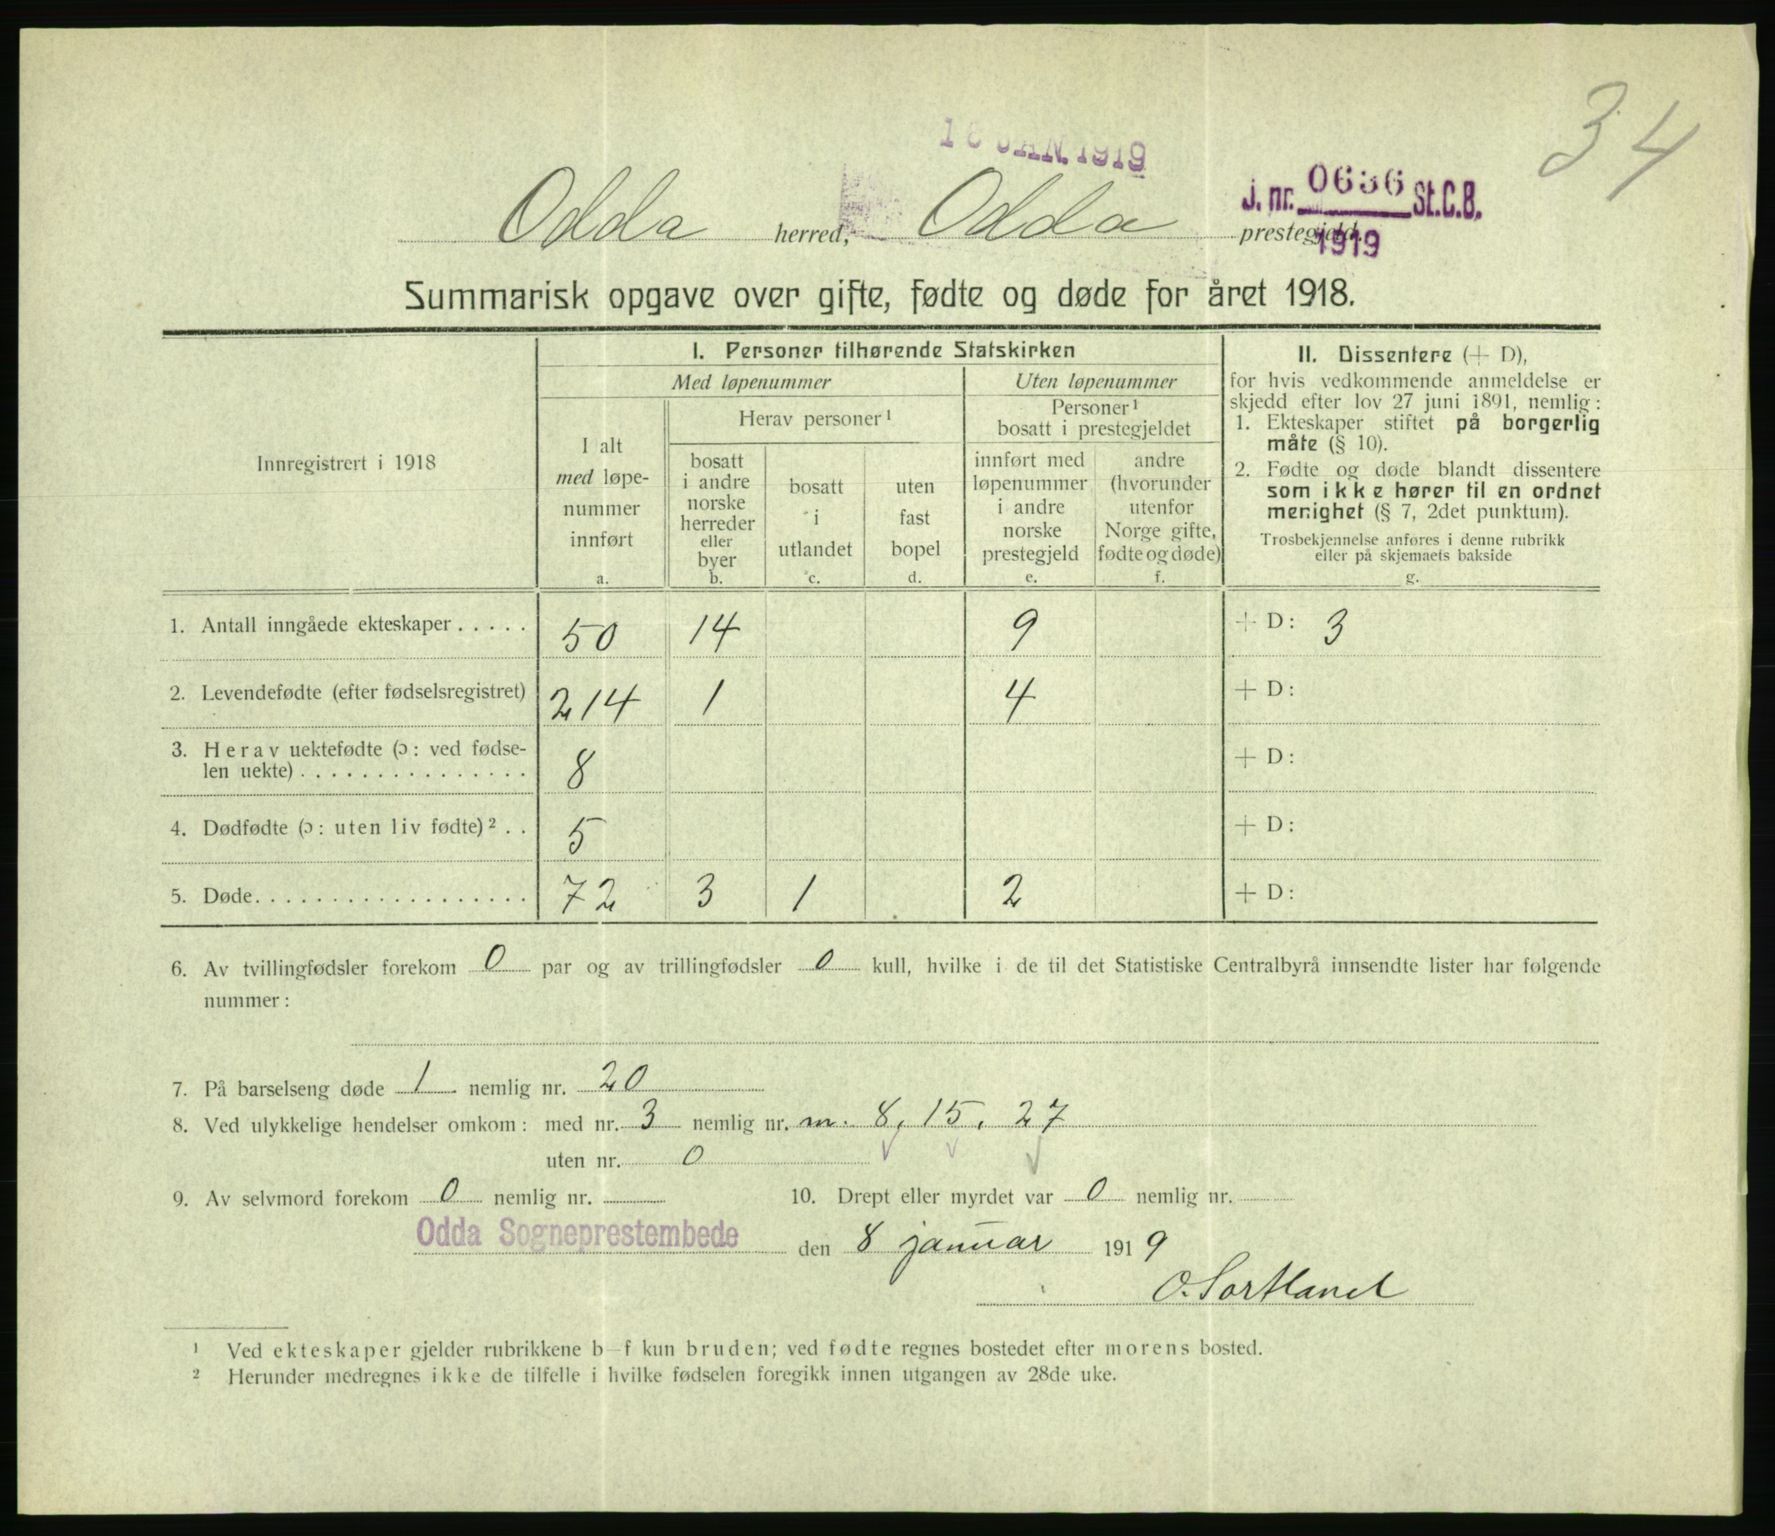 34
JAN 1919
J. nr. 0636 St.C.B.
1919
Odda herred, Odda prestegjeld.
Summarisk opgave over gifte, fødte og døde for året 1918.
Innregistrert i 1918
I. Personer tilhørende Statskirken
Med løpenummer
Uten løpenummer
I alt
med løpe-
nummer
innført
a.
Herav personer¹
bosatt
i andre
norske
herreder
eller
byer
b.
bosatt
i
utlandet
c.
uten
fast
bopel
d.
Personer¹
bosatt i prestegjeldet
innført med
løpenummer
i andre
norske
prestegjeld
e.
andre
(hvorunder
utenfor
Norge gifte,
fødte og døde)
f.
II. Dissentere (+ D),
for hvis vedkommende anmeldelse er
skjedd efter lov 27 juni 1891, nemlig:
1. Ekteskaper stiftet på borgerlig
måte (§ 10).
2. Fødte og døde blandt dissentere
som ikke hører til en ordnet
menighet (§ 7, 2det punktum).
Trosbekjennelse anføres i denne rubrikk
eller på skjemaets bakside
g.
1. Antall inngåede ekteskaper . . . . . 50 14 9 + D: 3
2. Levendefødte (efter fødselsregistret) 214 1 4 + D:
3. Herav uektefødte (ɔ: ved fødse-
len uekte) . . . . . . . . . . . . . . . 8 + D:
4. Dødfødte (ɔ: uten liv fødte)² . . 5 + D:
5. Døde. . . . . . . . . . . . . . . . . . 72 3 1 2 + D:
6. Av tvillingfødsler forekom 0 par og av trillingfødsler 0 kull, hvilke i de til det Statistiske Centralbyrå innsendte lister har følgende
nummer:
7. På barselseng døde 1 nemlig nr. 20
8. Ved ulykkelige hendelser omkom: med nr. 3 nemlig nr. m. 8, 15, 27
uten nr. 0
9. Av selvmord forekom 0 nemlig nr. 10. Drept eller myrdet var 0 nemlig nr.
Odda Sogneprestembede den 8 januar 1919
O. Sortland
¹ Ved ekteskaper gjelder rubrikkene b—f kun bruden; ved fødte regnes bostedet efter morens bosted.
² Herunder medregnes ikke de tilfelle i hvilke fødselen foregikk innen utgangen av 28de uke.